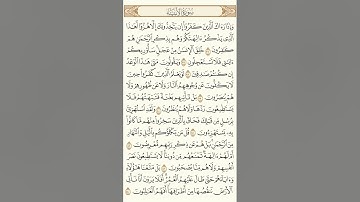 سورة الأنبياء
وَإِذَا رَءَاكَ ٱلَّذِينَ كَفَرُوٓا۟ إِن يَتَّخِذُونَكَ إِلَّا هُزُوًا أَهَٰذَا
ٱلَّذِى يَذْكُرُ ءَالِهَتَكُمْ وَهُم بِذِكْرِ ٱلرَّحْمَٰنِ هُمْ
كَٰفِرُونَ ۝ خُلِقَ ٱلْإِنسَٰنُ مِنْ عَجَلٍ سَأُو۟رِيكُمْ
ءَايَٰتِى فَلَا تَسْتَعْجِلُونِ ۝ وَيَقُولُونَ مَتَىٰ هَٰذَا ٱلْوَعْدُ
إِن كُنتُمْ صَٰدِقِينَ ۝ لَوْ يَعْلَمُ ٱلَّذِينَ كَفَرُوا۟ حِينَ
لَا يَكُفُّونَ عَن وُجُوهِهِمُ ٱلنَّارَ وَلَا عَن ظُهُورِهِمْ وَلَا
هُمْ يُنصَرُونَ ۝ بَلْ تَأْتِيهِم بَغْتَةً فَتَبْهَتُهُمْ فَلَا
يَسْتَطِيعُونَ رَدَّهَا وَلَا هُمْ يُنظَرُونَ ۝ وَلَقَدِ ٱسْتُهْزِئَ
بِرُسُلٍ مِّن قَبْلِكَ فَحَاقَ بِٱلَّذِينَ سَخِرُوا۟ مِنْهُم مَّا كَانُوا۟
بِهِۦ يَسْتَهْزِءُونَ ۝ قُلْ مَن يَكْلَؤُكُم بِٱلَّيْلِ وَٱلنَّهَارِ
مِنَ ٱلرَّحْمَٰنِ بَلْ هُمْ عَن ذِكْرِ رَبِّهِم مُّعْرِضُونَ ۝
أَمْ لَهُمْ ءَالِهَةٌ تَمْنَعُهُم مِّن دُونِنَا لَا يَسْتَطِيعُونَ نَصْرَ
أَنفُسِهِمْ وَلَا هُم مِّنَّا يُصْحَبُونَ ۝ بَلْ مَتَّعْنَا هَٰٓؤُلَآءِ
وَءَابَآءَهُمْ حَتَّىٰ طَالَ عَلَيْهِمُ ٱلْعُمُرُ أَفَلَا يَرَوْنَ أَنَّا نَأْتِى
ٱلْأَرْضَ نَنقُصُهَا مِنْ أَطْرَافِهَآ أَفَهُمُ ٱلْغَٰلِبُونَ ۝